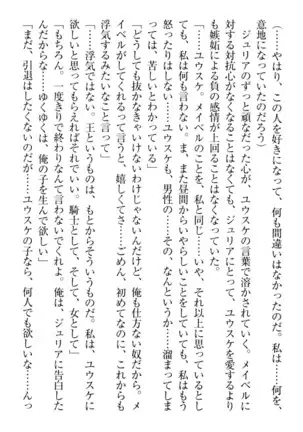 （……やはり、この人を好きになって、何も間違いはなかった。私は……何を、
意地になっていたのだろう）
　ジュリアのずっと頑なだった心が、ユウスケの言葉で溶かされていく。メイベルに
対する対抗心がなくなることはなくても、ジュリアにとって、ユウスケを愛するより
も嫉妬による負の感情が上回ることはなくなっていた。
「ユウスケ、メイベルのことを、私と同じ……いや、それ以上に思っているとし
ても、私は何も言わない。また、昼間からいやらしいことをしていても、私はもう
怒ったりはしない。ユウスケも、男性の……その……そういうというか……溜まってしま
っては、苦しいとわかっている」
「どうしても抜かなきゃいけないわけじゃないんだけど、俺も仕方ない奴だから。メ
イベルがしてくれるって言うと、嬉しくてさ……ごめん、初めてなのに、これからも
浮気するみたいなこと言って」
「……浮気ではない。王というものは、もとからそういうものだ。私は、ユウスケに
欲しいと思ってもらえればそれでいい。騎士として、そして、女として」
「もちろん。一度きりで終わりなんて言わないでくれよ。俺は、ジュリアに告白した
んだからな……ゆくゆくは、俺の子を生んで欲しい」
「まだ、引退はしたくないのだが……ユウスケの子なら、何人でも欲しいな……んっ